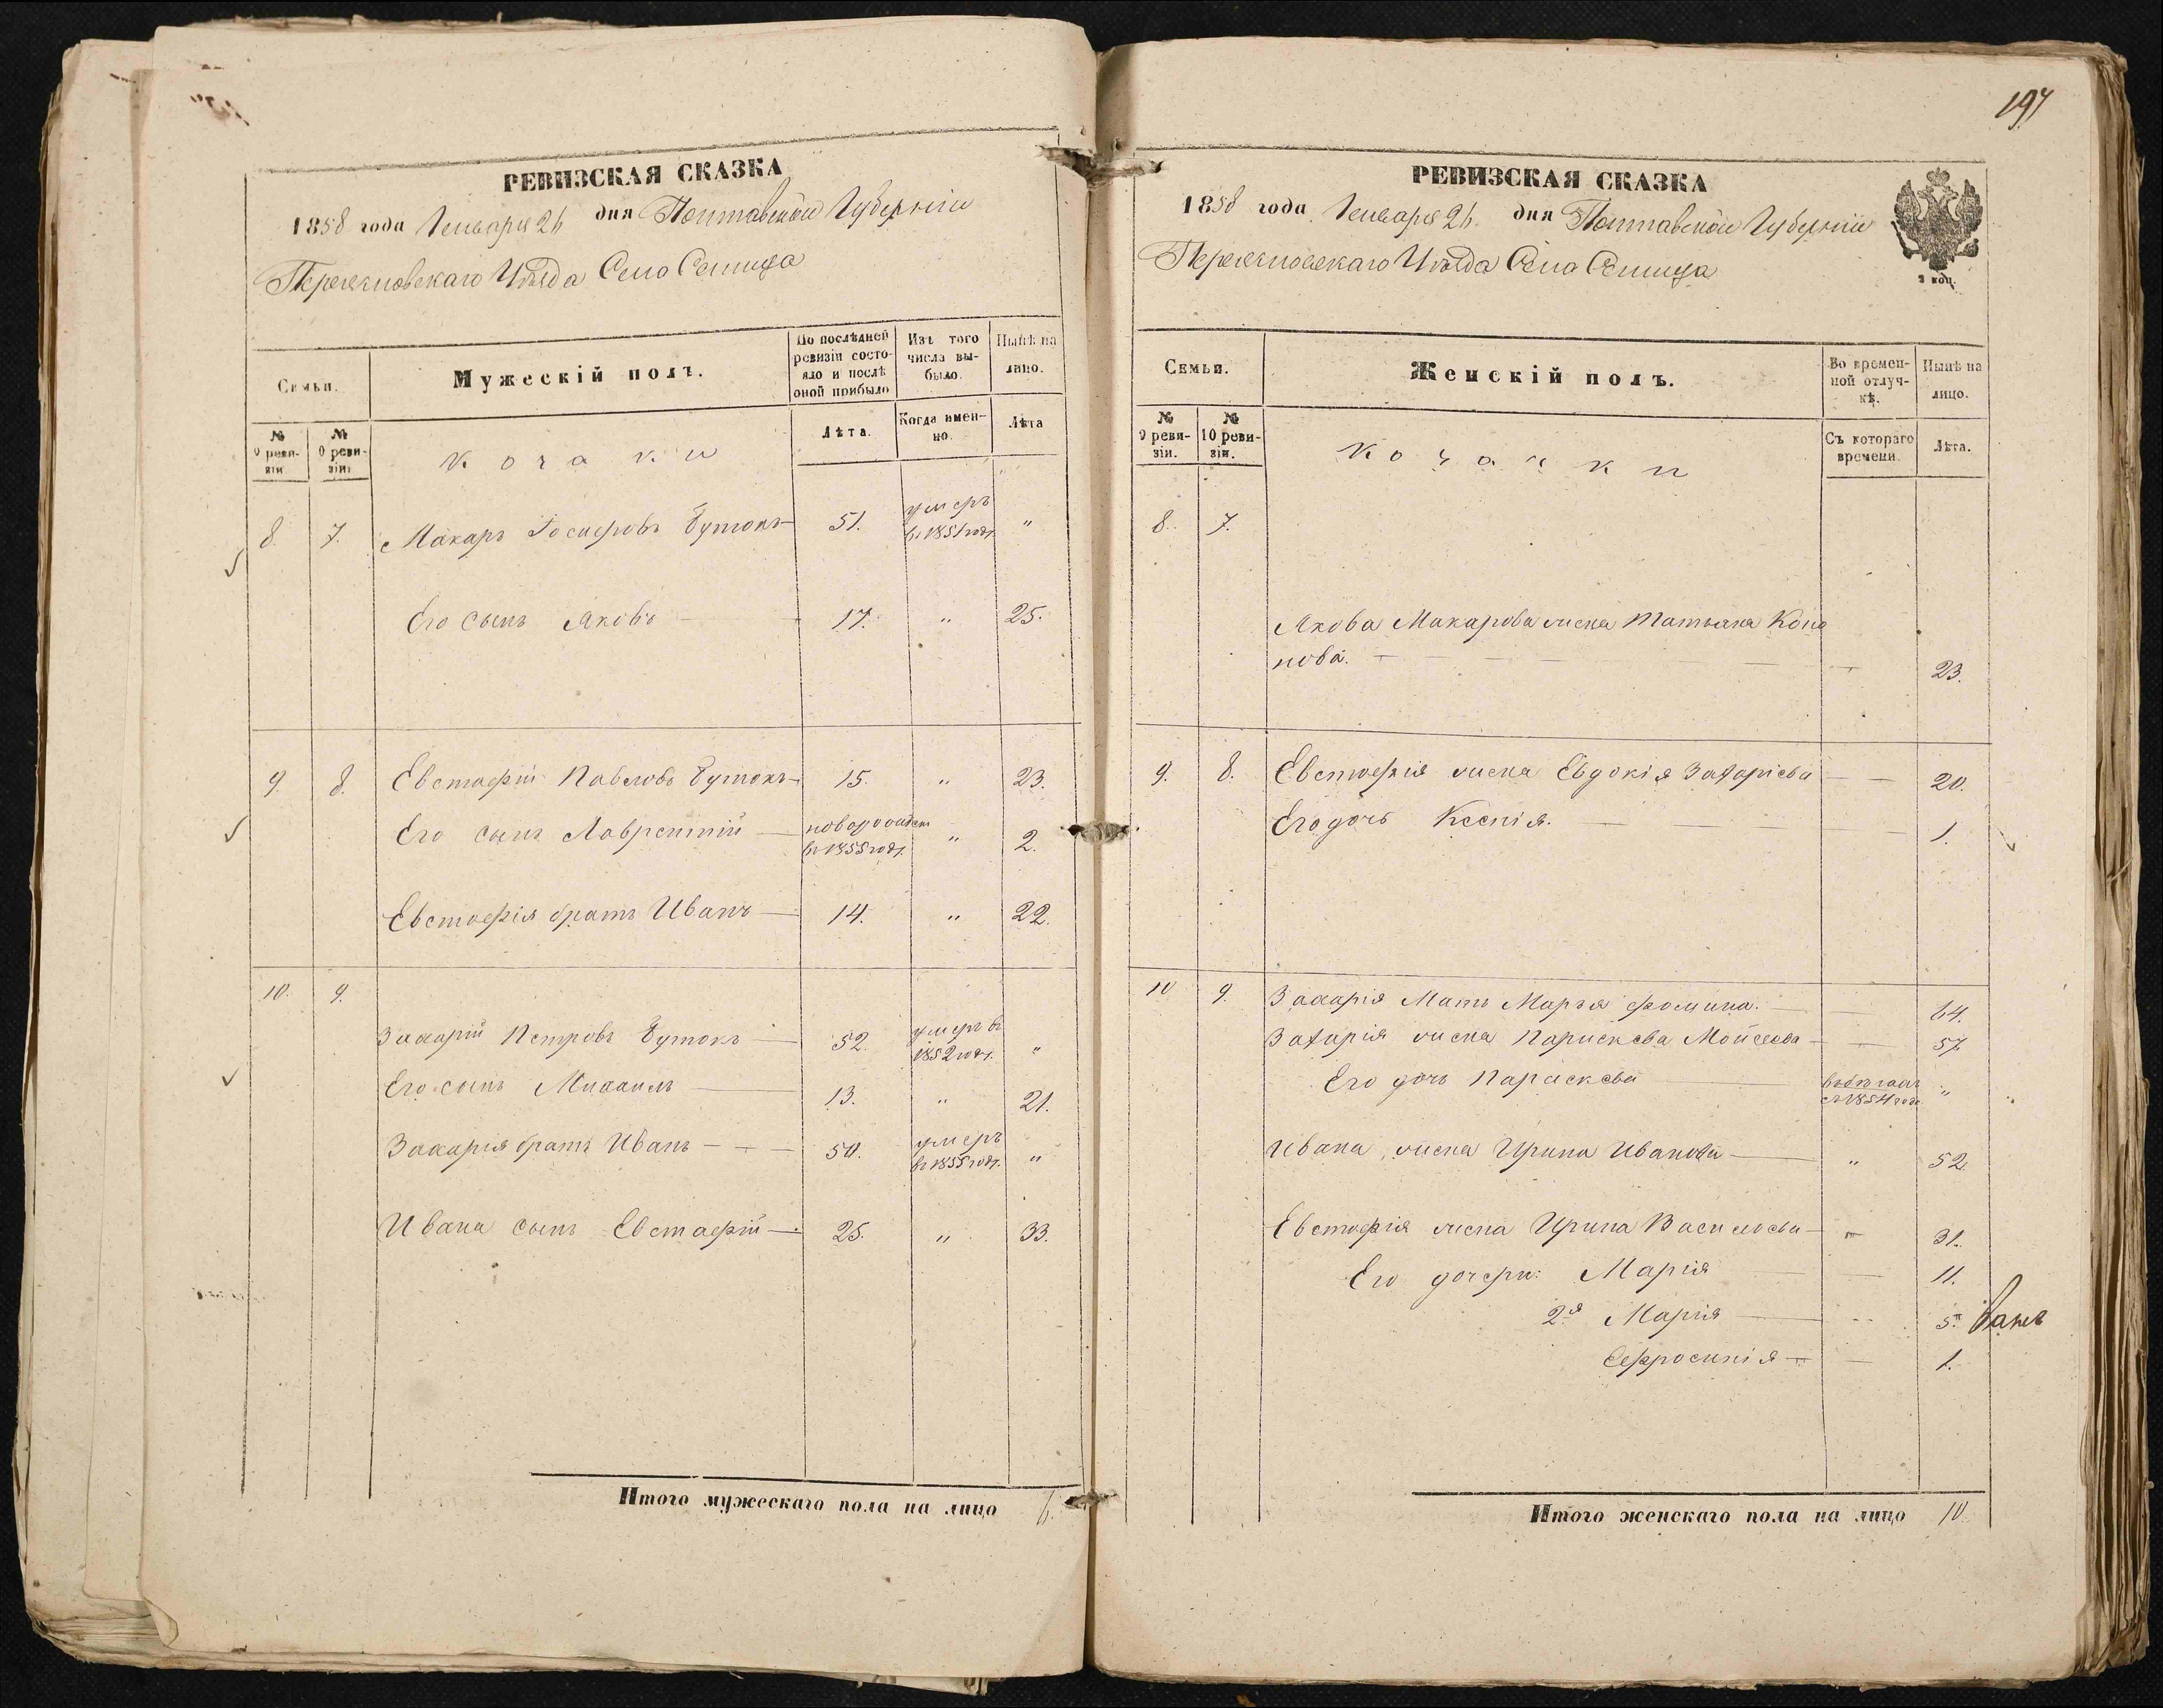 РЕВИЗСКАЯ СКАЗКА
1858 года Генваря 26 дня Полтавской Губерніи
Переяславскаго Уѣзда Село
Семьи.
Мужескій полъ.
По послѣдней ревизіи состо-
яло и послѣ
оной прибыло
Изъ того
числа вы-
было.
Нынѣ на
лицо.
№
9 реви-
зіи
№
10 реви-
зіи
Козаки
Лѣта.
Когда имен-
но.
Лѣта
8. 7. Макаръ Бутокъ 51. умеръ
въ 1851 год. "
Его сынъ Яковъ 17. " 25.
9. 8. Евстафій Павловъ Бутокъ 15. " 23.
Его сынъ Лаврентій новорожден
въ 1855 год. " 2.
Евстафія братъ Иванъ 14. " 22.
10. 9.
Захарій Петровъ Бутокъ 52. умеръ въ
1852 год. "
Его сынъ Михаилъ 13. " 21.
Захарія братъ Иванъ 50. умеръ
въ 1855 год. "
Ивана сынъ Евстафій 25. " 33.
Итого мужескаго пола на лицо 6.
197
РЕВИЗСКАЯ СКАЗКА
1858 года Генваря 26. дня Полтавской Губерніи
Переяславскаго Уѣзда Село
2 коп.
Семьи.
Женскій полъ.
Во времен-
ной отлуч-
кѣ.
Нынѣ на
лицо.
№
9 реви-
зіи.
№
10 реви-
зіи.
Козачки
Съ котораго
времени.
Лѣта.
8. 7.
Якова Макарова жена Татьяна Коно
нова. 23.
9. 8. Евстафія жена Евдокія Захаріева 20.
Его дочь Ксенія. 1.
10 9. Захарія Мать Марья Фомина. 64.
Захарія жена Параскева Мойсеева 57.
Его дочь Параскева въ бѣгахъ
съ 1854 года "
Ивана жена Ирина Иванова " 52.
Евстафія жена Ирина Васильева 31.
Его дочери: Марія 11.
2я Марія 5.
Ефросинія 1.
Итого женскаго пола на лицо 10.